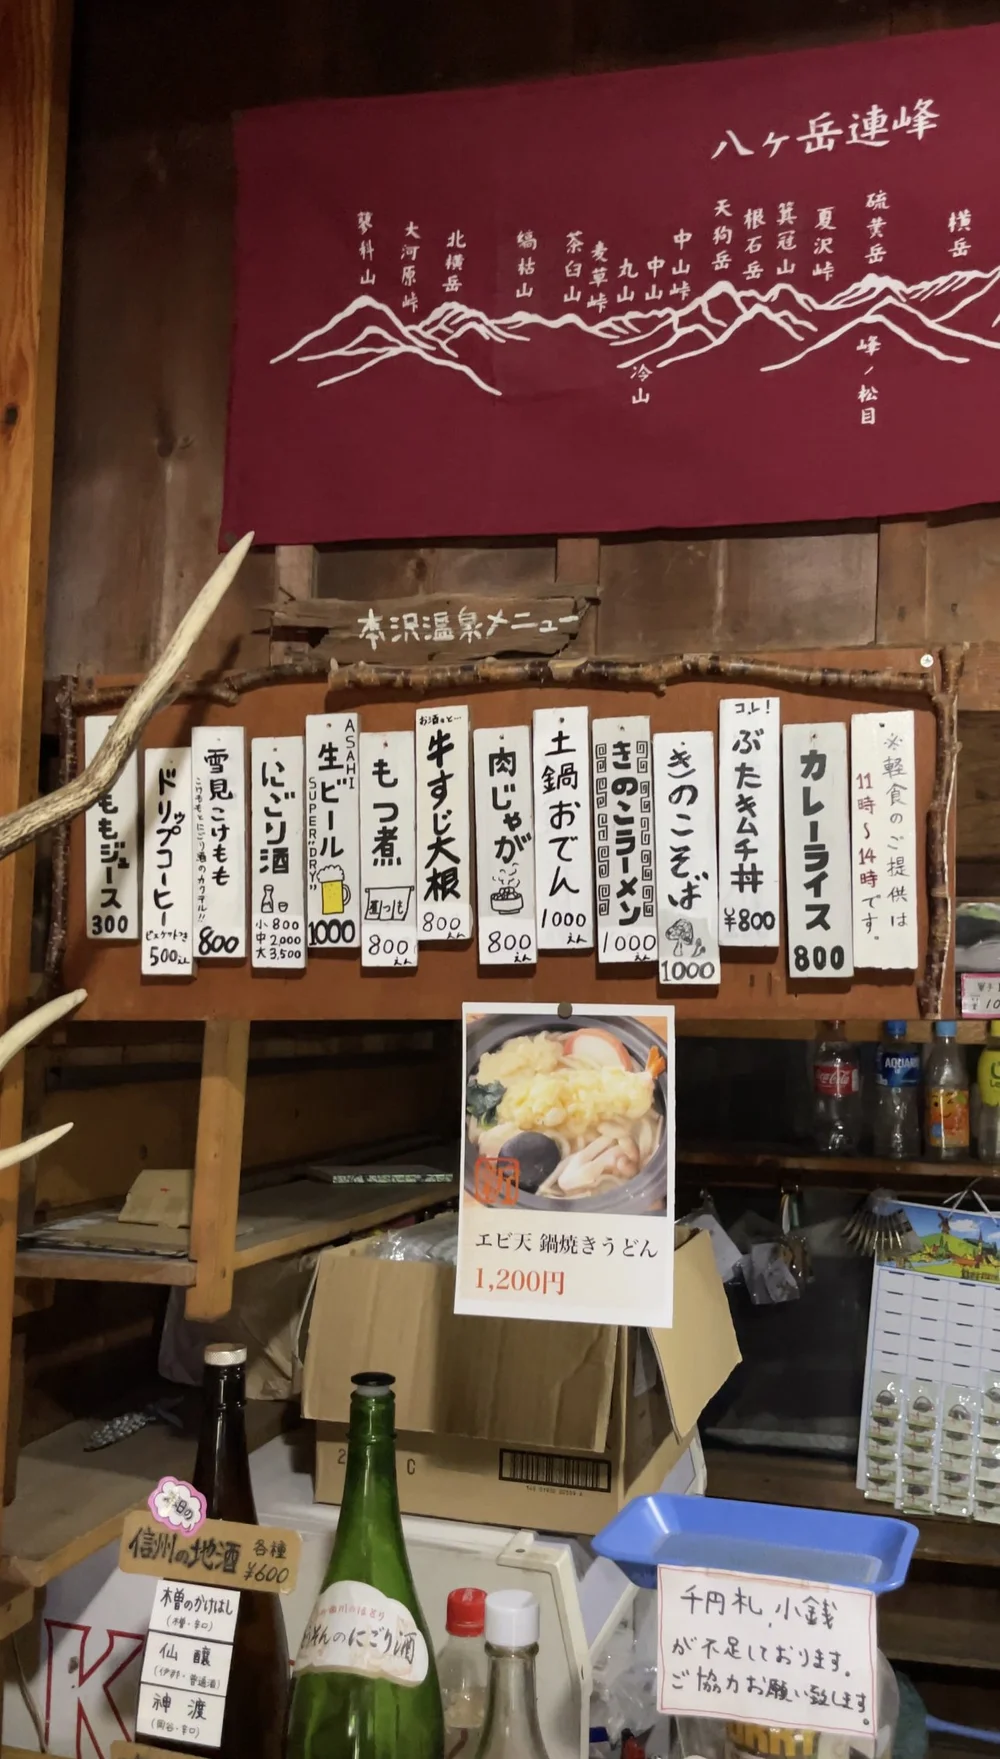 八ヶ岳連峰
蓼科山
大河原峠
北横岳
縞枯山
茶臼山
麦草峠
丸山
中山
中山峠
天狗岳
根石岳
箕冠山
夏沢峠
硫黄岳
横岳
冷山
峰ノ松目
本沢温泉メニュー
※軽食のご提供は
11時～14時です。
カレーライス
800
コレ!
ぶたキムチ丼
¥800
きのこそば
1000
きのこラーメン
1000
えん
土鍋おでん
1000
えん
肉じゃが
800
えん
お酒のと…
牛すじ大根
800
えん
もつ煮
800
えん
ASAHI
生ビール
SUPER"DRY"
1000
にごり酒
小 800
中 2,000
大 3,500
雪見こけもも
こけももとにごり酒のカクテル!!
800
ドリップコーヒー
ビスケットつき
500えん
ももジュース
300
エビ天 鍋焼きうどん
1,200円
AQUARIUS
信州の地酒
各種
¥600
木曽のかけはし
(木曽・辛口)
仙醸
(伊那・普通酒)
神渡
(岡谷・辛口)
のにごり酒
千円札、小銭
が不足しております。
ご協力お願い致します。
K
2
C